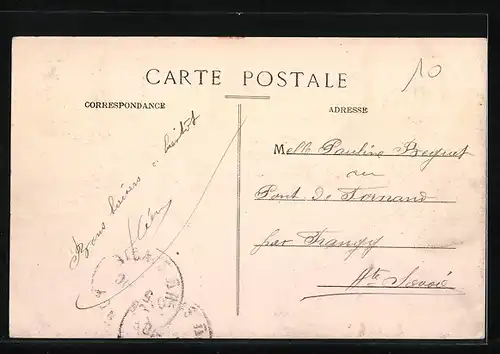 CARTE POSTALE
10
CORRESPONDANCE
ADRESSE
Bons baisers à bientôt
Melle Pauline
au
Pont de Fornand
par Frangy
Hte Savoie